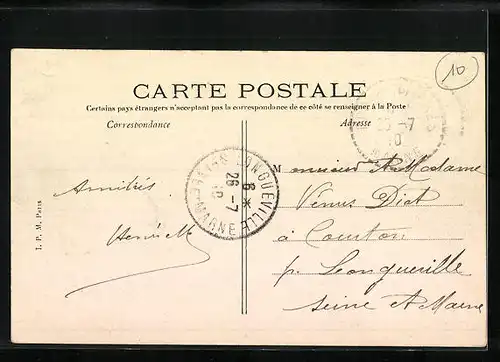 CARTE POSTALE
Certains pays étrangers n'acceptant pas la correspondance de ce côté se renseigner à la Poste
Correspondance
Adresse
10
Monsieur et Madame
Venus Diot
à Courton
p. Longueville
Seine et Marne
Amitiés
I. P. M. Paris
LONGUEVILLE
8 *
26 -7
10
MARNE
-7
10